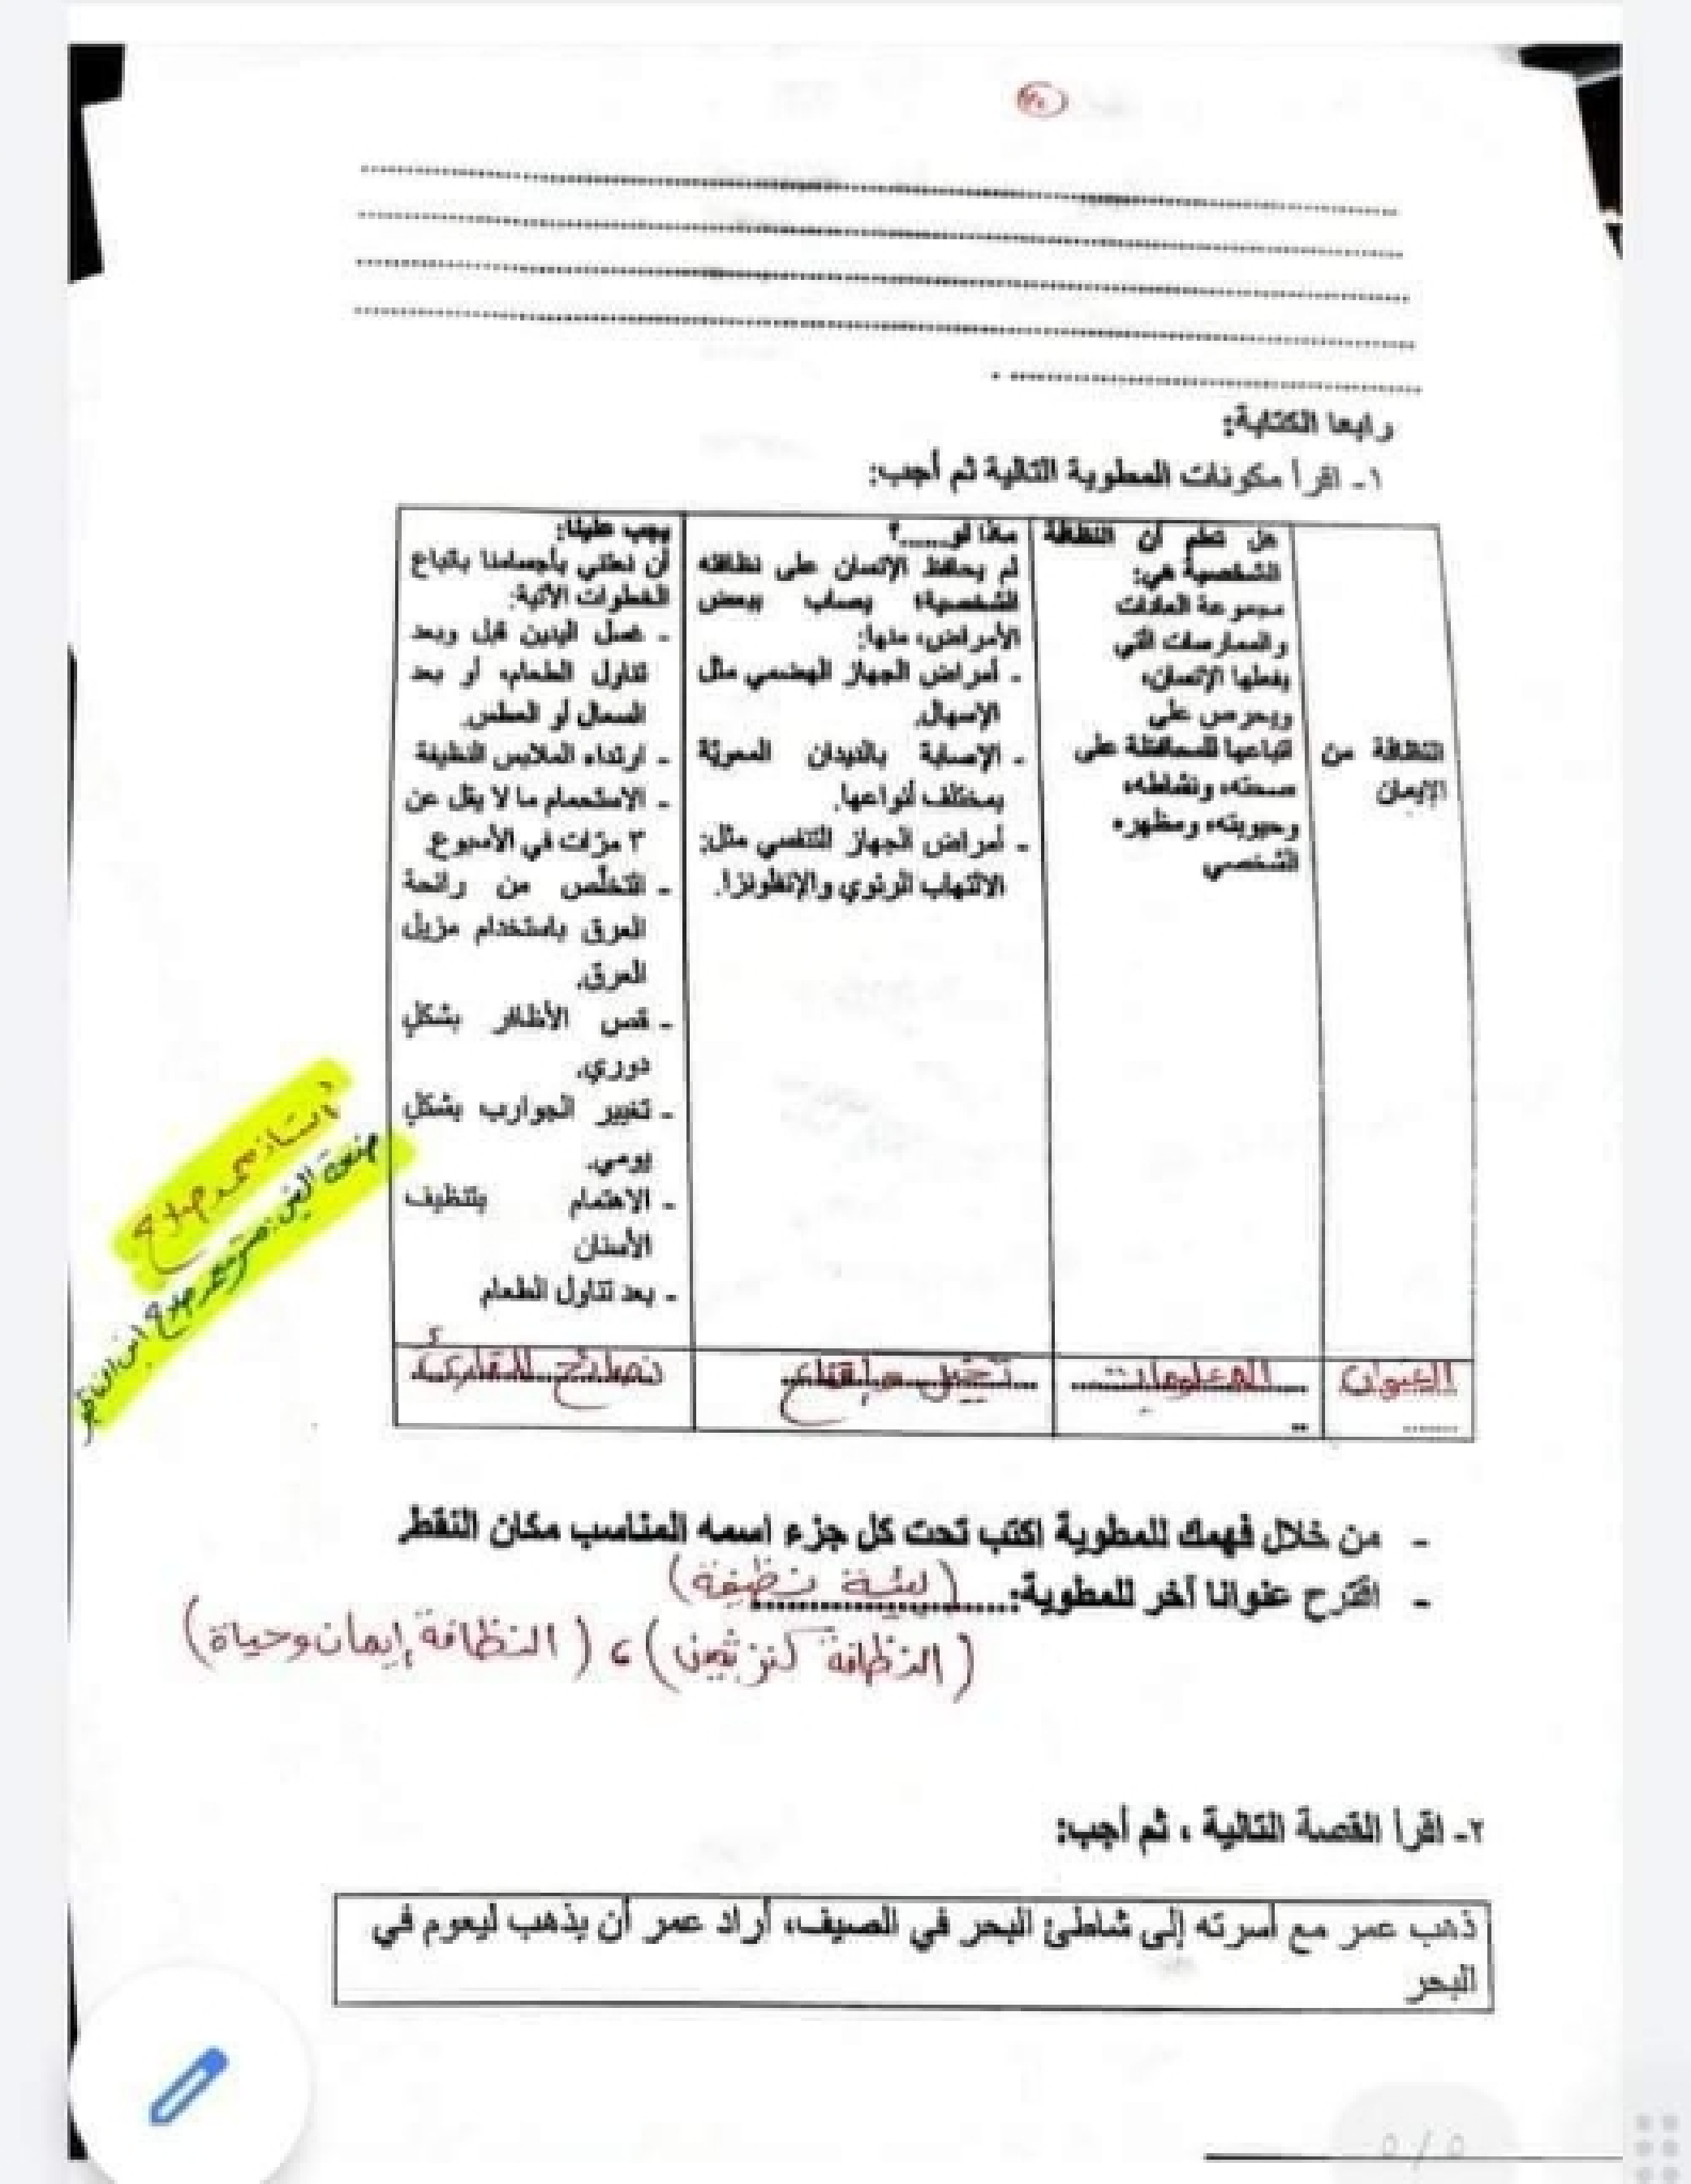 رابعا الكتابة:
١- اقرأ مكونات المطوية التالية ثم أجب:
النظافة من
الإيمان
هل تعلم أن النظافة
الشخصية هي:
مجموعة العادات
والممارسات التي
يفعلها الإنسان،
ويحرص على
اتباعها للمحافظة على
صحته، ونشاطه،
وحيويته، ومظهره
الشخصي
ماذا لو......؟
لم يحافظ الإنسان على نظافته
الشخصية؛ يصاب ببعض
الأمراض، منها:
- أمراض الجهاز الهضمي مثل
الإسهال.
- الإصابة بالديدان المعويّة
بمختلف أنواعها.
- أمراض الجهاز التنفسي مثل:
الالتهاب الرئوي والإنفلونزا.
يجب علينا:
أن نعتني بأجسامنا باتباع
الخطوات الآتية:
- غسل اليدين قبل وبعد
تناول الطعام، أو بعد
السعال أو العطس.
- ارتداء الملابس النظيفة
- الاستحمام ما لا يقل عن
٣ مرّات في الأسبوع.
- التخلّص من رائحة
العرق باستخدام مزيل
العرق.
- قص الأظافر بشكلٍ
دوري.
- تغيير الجوارب بشكلٍ
يومي.
- الاهتمام بتنظيف
الأسنان
- بعد تناول الطعام
العنوان
المعلومات
تخيل وإقناع
نصائح للقارئ
أستاذ محمد صلاح
- من خلال فهمك للمطوية اكتب تحت كل جزء اسمه المناسب مكان النقط.
- اقترح عنوانا آخر للمطوية: (بيئة نظيفة)
(النظافة كنز ثمين) ، (النظافة إيمان وحياة)
٢- اقرأ القصة التالية ، ثم أجب:
ذهب عمر مع أسرته إلى شاطئ البحر في الصيف، أراد عمر أن يذهب ليعوم في
البحر